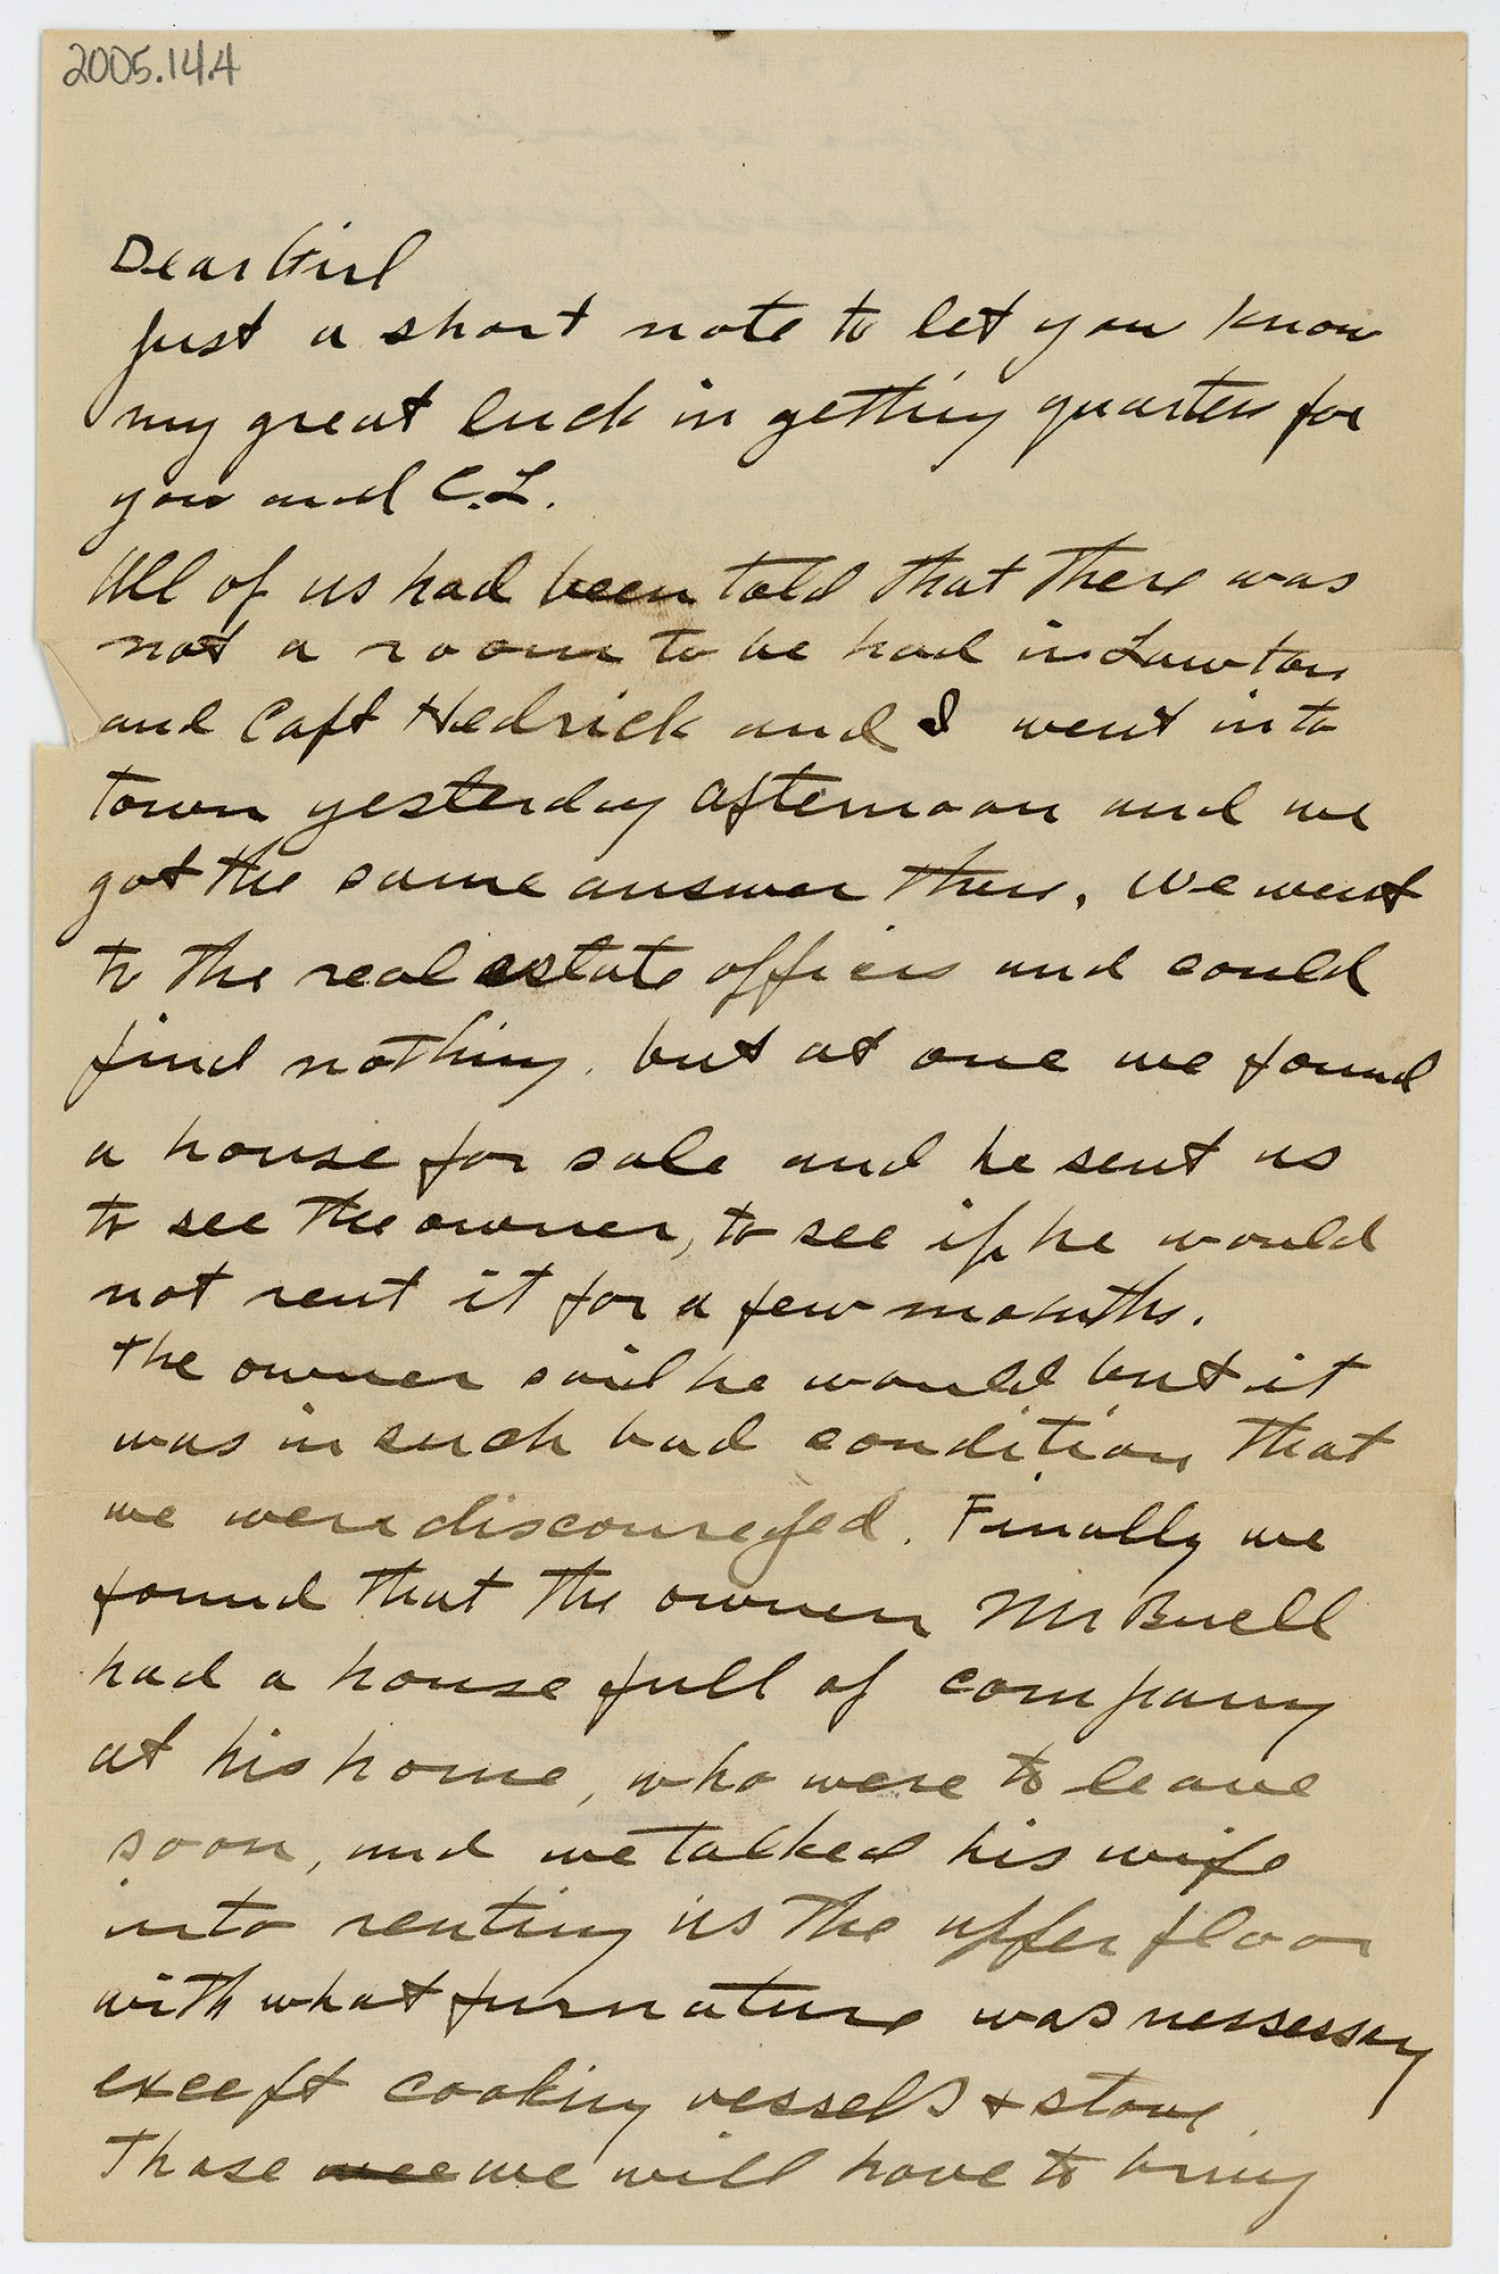 2005.14.4
Dear Girl
Just a short note to let you know
my great luck in getting quarters for
you and C.L.
All of us had been told that there was
not a room to be had in Lawton
and Capt Hedrick and I went into
town yesterday afternoon and we
got the same answer there. We went
to the real estate offices and could
find nothing, but at one we found
a house for sale and he sent us
to see the owner, to see if he would
not rent it for a few months.
The owner said he would but it
was in such bad condition that
we were discoureged. Finally we
found that the owner Mr Buell
had a house full of company
at his home, who were to leave
soon, and we talked his wife
into renting us the upper floor
with what furnature was nessessary
except cooking vessels + stove.
Those we will have to bring